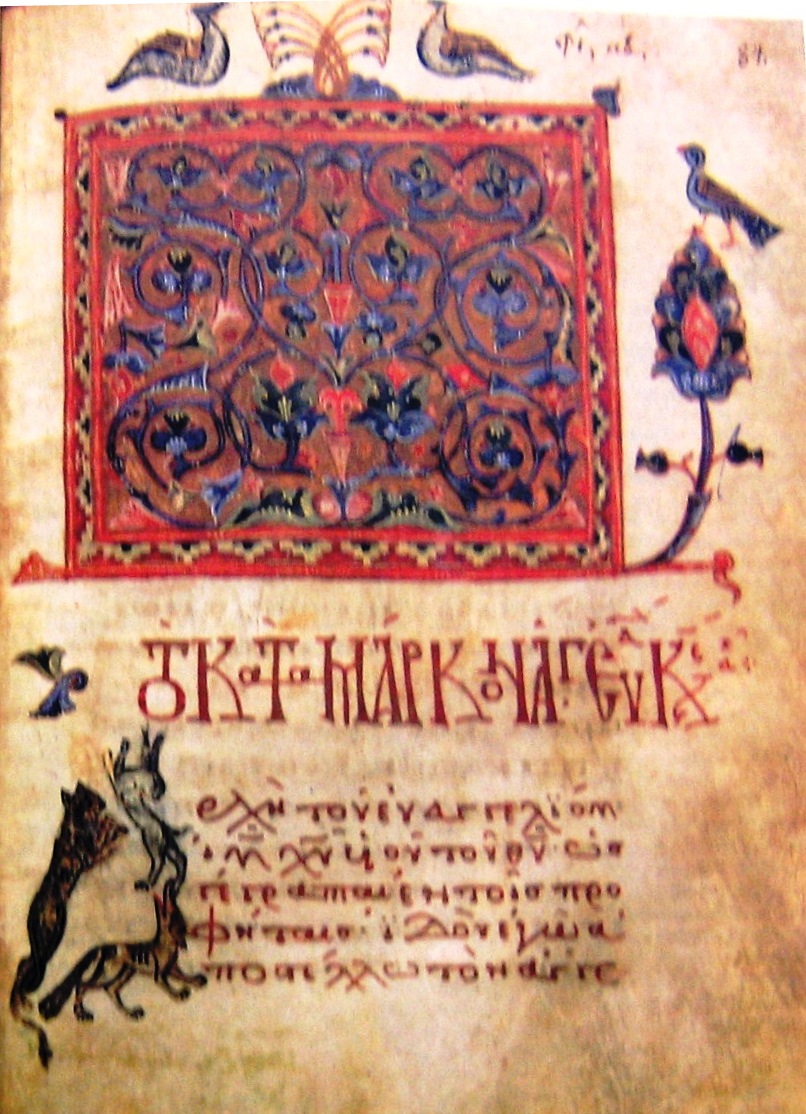 87.
ΤΟ ΚαΤα ΜΑΡΚΟΝ ΑΓ. ΕΥ
Ἀρχὴ τοῦ εὐαγγελίου
ἰῦ χῦ υἱοῦ τοῦ θῦ· ὡσ
γέγραπται ἐν τοῖσ προ
φήταισ· ἰδοὺ ἐγὼ ἀ
ποστέλλω τὸν ἄγγε